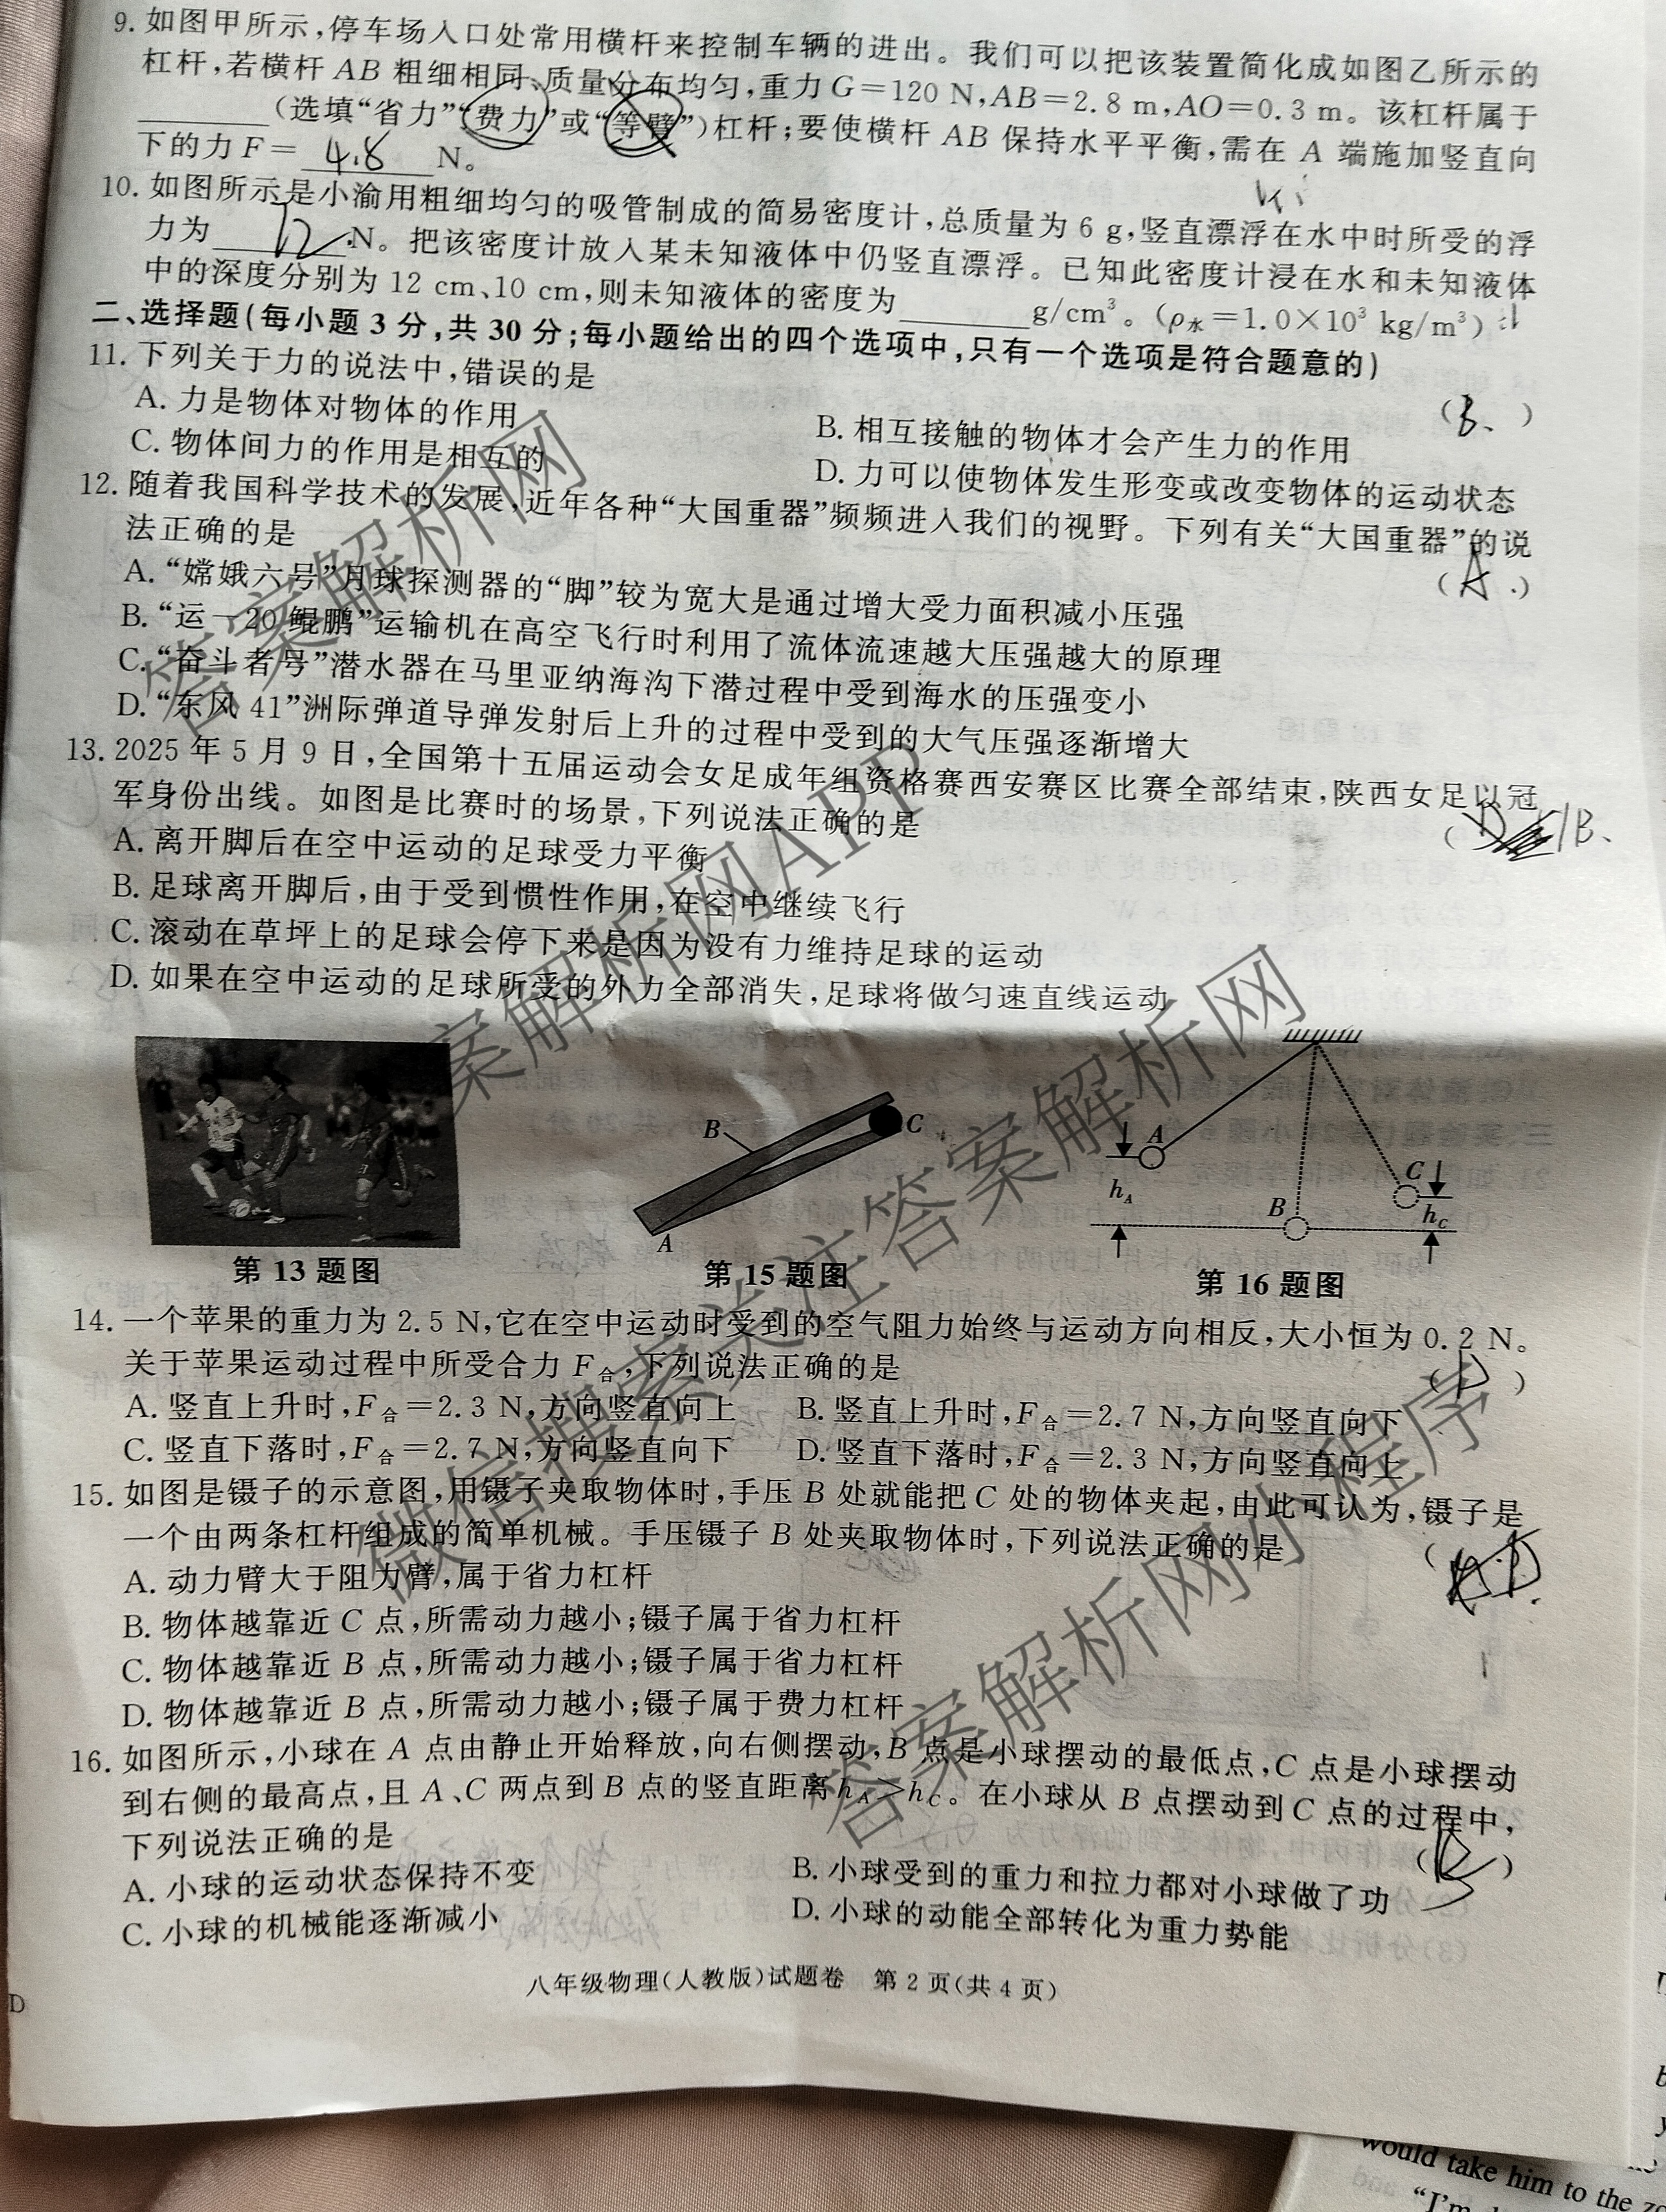 9. 如图甲所示,停车场入口处常用横杆来控制车辆的进出。我们可以把该装置简化成如图乙所示的
杠杆,若横杆 AB 粗细相同、质量分布均匀,重力 G=120 N,AB=2.8 m,AO=0.3 m。该杠杆属于
________(选填“省力”“费力”或“等臂”)杠杆;要使横杆 AB 保持水平平衡,需在 A 端施加竖直向
下的力 F= 4.8 N。
10. 如图所示是小渝用粗细均匀的吸管制成的简易密度计,总质量为 6 g,竖直漂浮在水中时所受的浮
力为 12 N。把该密度计放入某未知液体中仍竖直漂浮。已知此密度计浸在水和未知液体
中的深度分别为 12 cm、10 cm,则未知液体的密度为________g/cm³。(ρ水=1.0×10³ kg/m³)
二、选择题(每小题 3 分,共 30 分;每小题给出的四个选项中,只有一个选项是符合题意的)
11. 下列关于力的说法中,错误的是 ( B、 )
A. 力是物体对物体的作用 B. 相互接触的物体才会产生力的作用
C. 物体间力的作用是相互的 D. 力可以使物体发生形变或改变物体的运动状态
12. 随着我国科学技术的发展,近年各种“大国重器”频频进入我们的视野。下列有关“大国重器”的说
法正确的是 ( A . )
A. “嫦娥六号”月球探测器的“脚”较为宽大是通过增大受力面积减小压强
B. “运-20 鲲鹏”运输机在高空飞行时利用了流体流速越大压强越大的原理
C. “奋斗者号”潜水器在马里亚纳海沟下潜过程中受到海水的压强变小
D. “东风 41”洲际弹道导弹发射后上升的过程中受到的大气压强逐渐增大
13. 2025 年 5 月 9 日,全国第十五届运动会女足成年组资格赛西安赛区比赛全部结束,陕西女足以冠
军身份出线。如图是比赛时的场景,下列说法正确的是 ( D B、
A. 离开脚后在空中运动的足球受力平衡
B. 足球离开脚后,由于受到惯性作用,在空中继续飞行
C. 滚动在草坪上的足球会停下来是因为没有力维持足球的运动
D. 如果在空中运动的足球所受的外力全部消失,足球将做匀速直线运动
B C A
A B C hA hC
第 13 题图 第 15 题图 第 16 题图
14. 一个苹果的重力为 2.5 N,它在空中运动时受到的空气阻力始终与运动方向相反,大小恒为 0.2 N。
关于苹果运动过程中所受合力 F合,下列说法正确的是 ( D )
A. 竖直上升时,F合=2.3 N,方向竖直向上 B. 竖直上升时,F合=2.7 N,方向竖直向下
C. 竖直下落时,F合=2.7 N,方向竖直向下 D. 竖直下落时,F合=2.3 N,方向竖直向上
15. 如图是镊子的示意图,用镊子夹取物体时,手压 B 处就能把 C 处的物体夹起,由此可认为,镊子是
一个由两条杠杆组成的简单机械。手压镊子 B 处夹取物体时,下列说法正确的是 (
A. 动力臂大于阻力臂,属于省力杠杆
B. 物体越靠近 C 点,所需动力越小;镊子属于省力杠杆
C. 物体越靠近 B 点,所需动力越小;镊子属于省力杠杆
D. 物体越靠近 B 点,所需动力越小;镊子属于费力杠杆
16. 如图所示,小球在 A 点由静止开始释放,向右侧摆动,B 点是小球摆动的最低点,C 点是小球摆动
到右侧的最高点,且 A、C 两点到 B 点的竖直距离 hA>hC。在小球从 B 点摆动到 C 点的过程中,
下列说法正确的是 ( B )
A. 小球的运动状态保持不变 B. 小球受到的重力和拉力都对小球做了功
C. 小球的机械能逐渐减小 D. 小球的动能全部转化为重力势能
八年级物理(人教版)试题卷 第 2 页(共 4 页)
D
would take him to the
“I'm
答案解析网
答案解析网APP
微信搜索关注答案解析网
答案解析网小程序